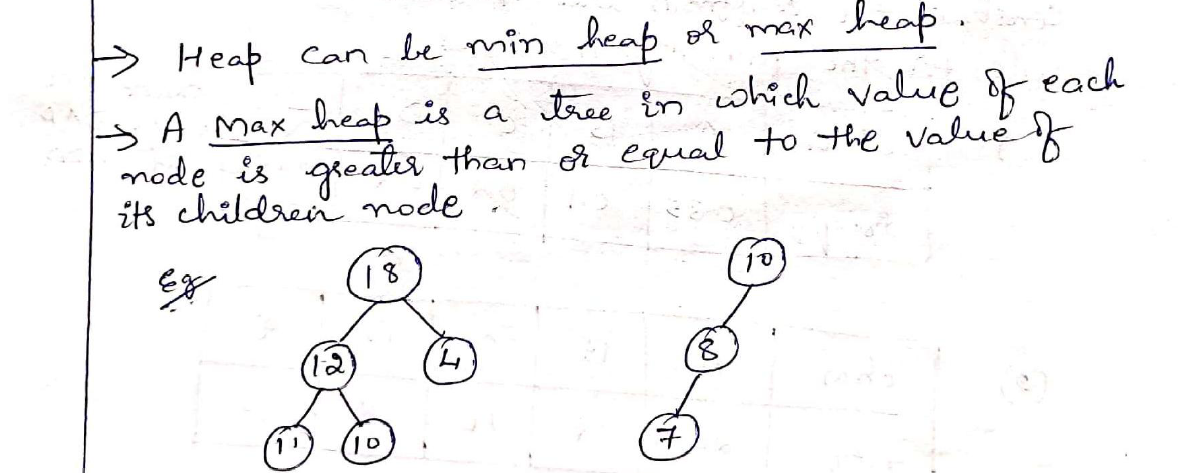 → Heap can be min heap or max heap.
→ A Max heap is a tree in which value of each
node is greater than or equal to the value of
its children node.
Eg
18 10
12 4 8
11 10 7